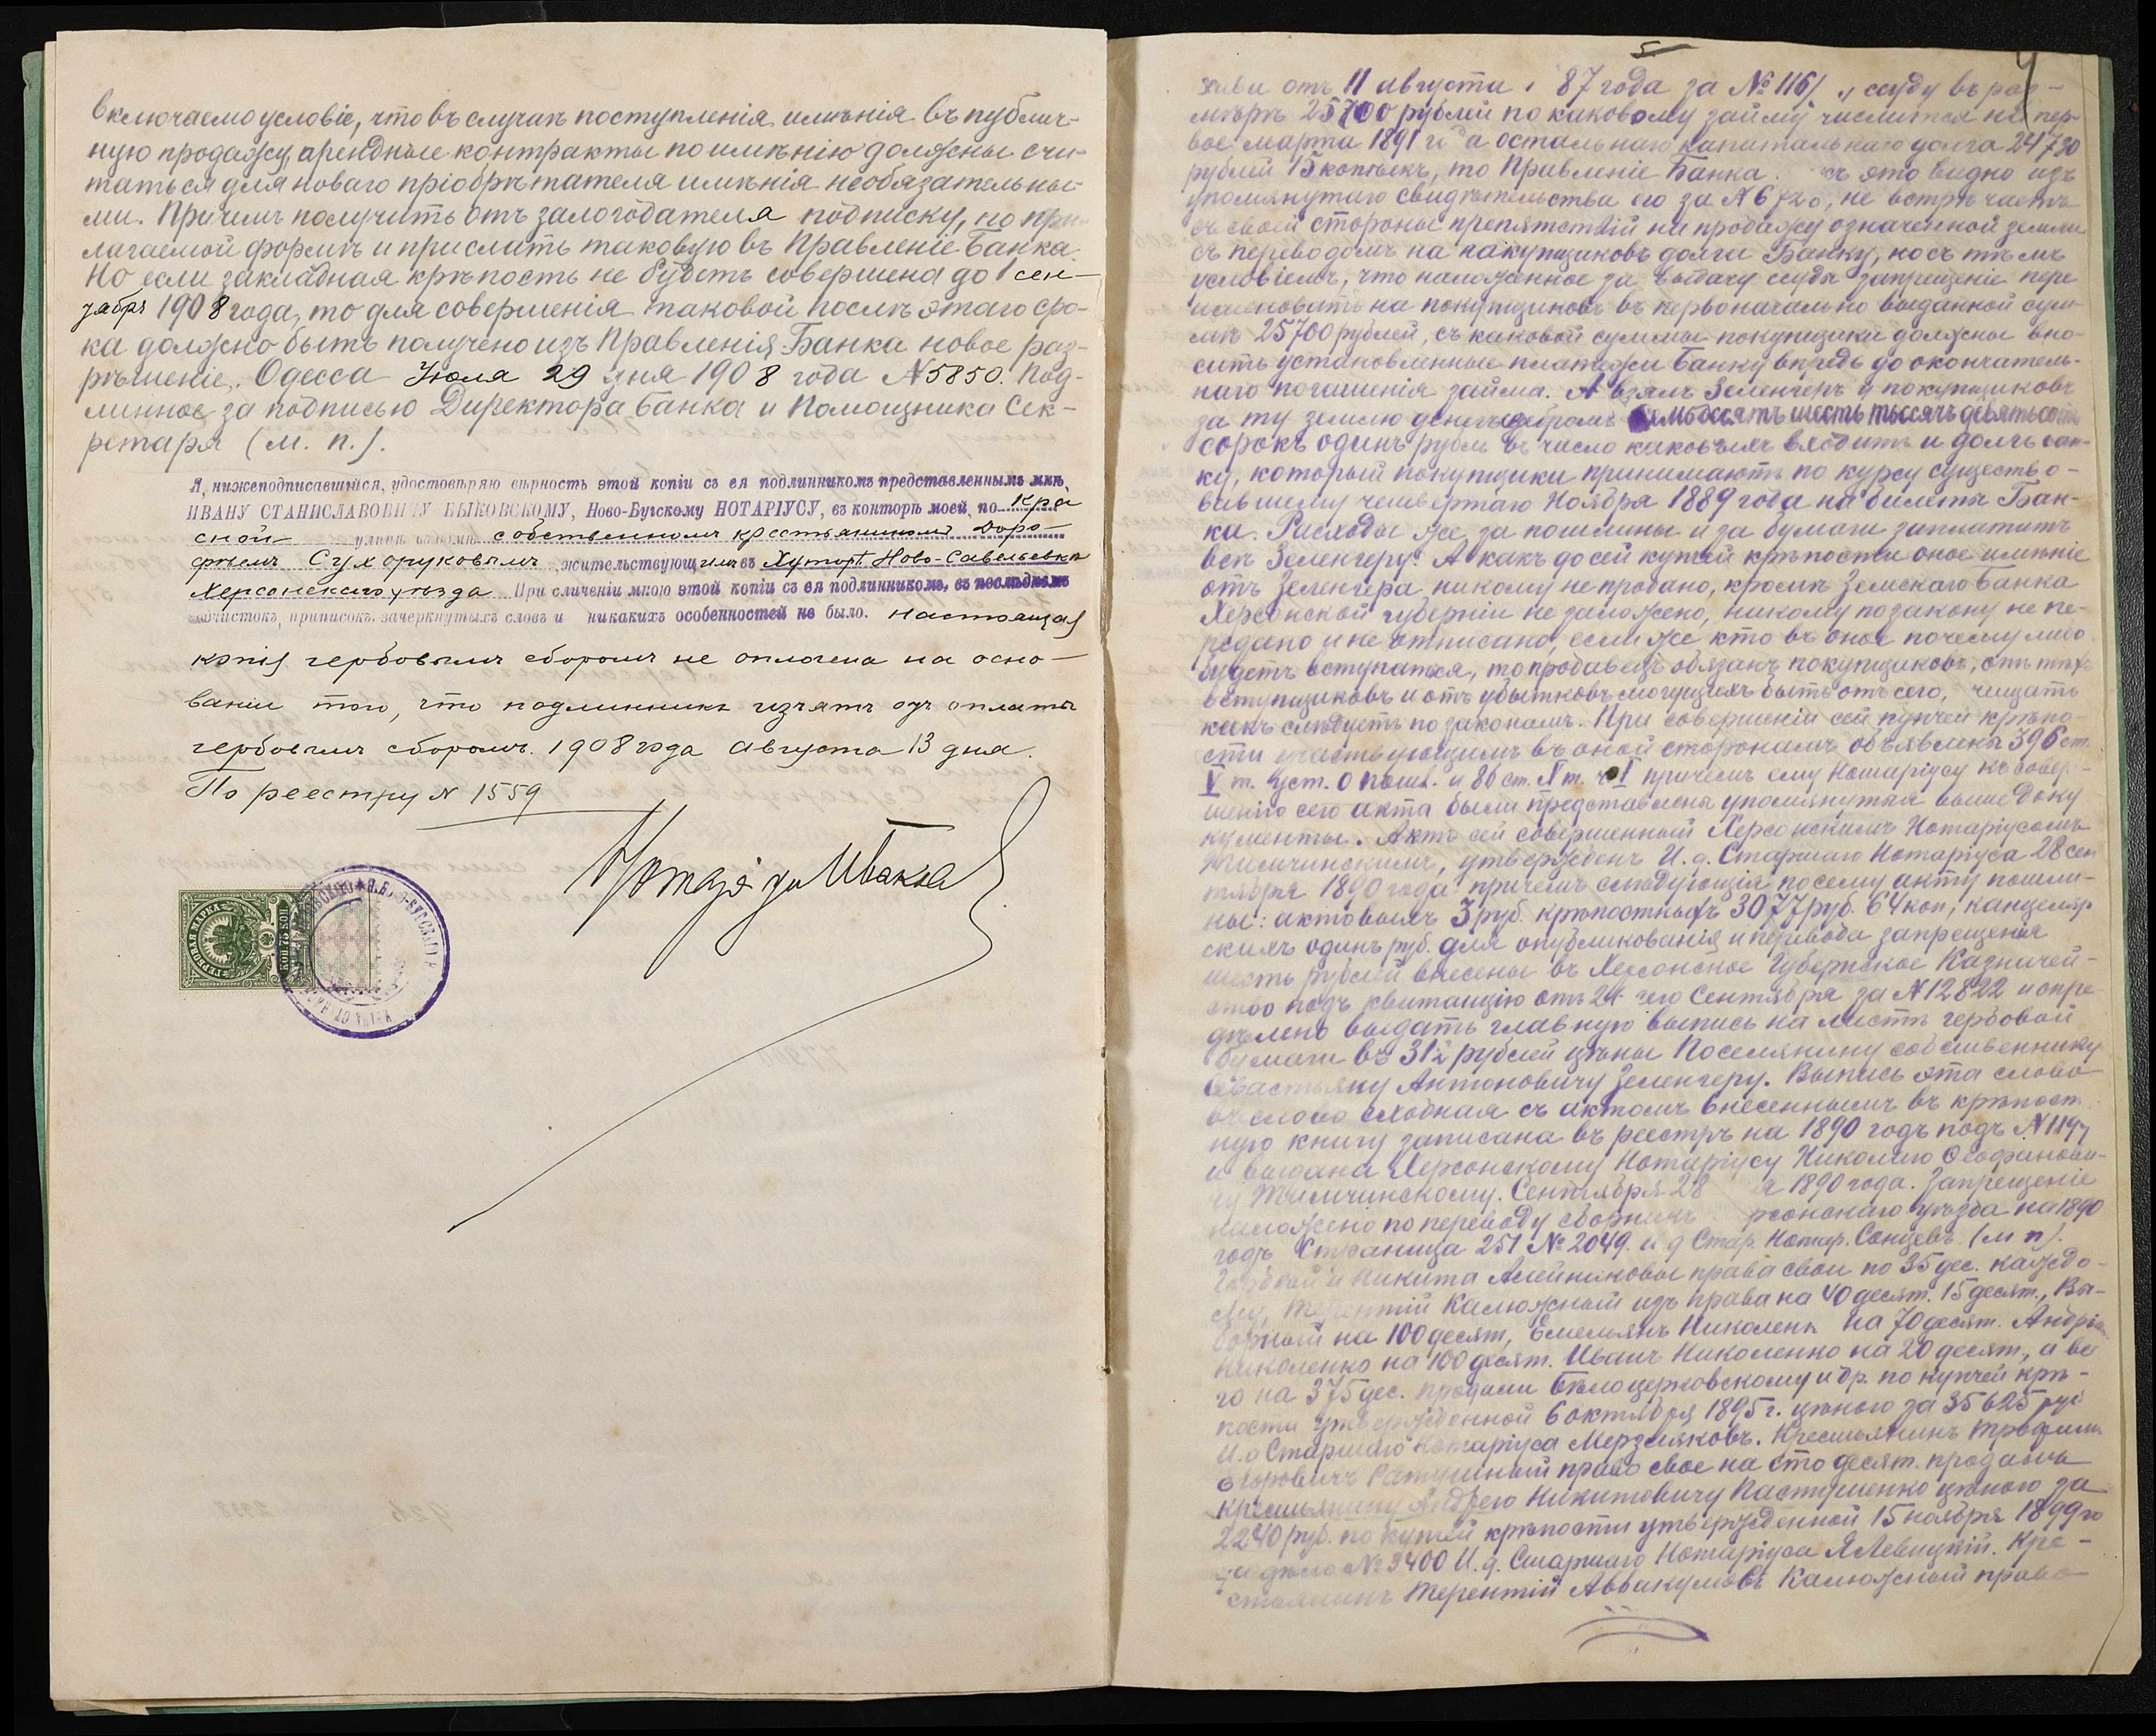 включаемо условіе, что въ случаѣ поступленія имѣнія въ публич-
ную продажу, арендные контракты по имѣнію должны счи-
таться для новаго пріобрѣтателя имѣнія необязательны-
ми. Причемъ получить отъ залогодателя подписку, по при-
лагаемой формѣ и прислать таковую въ Правленіе Банка.
Но если закладная крѣпость не будетъ совершена до 1 сен-
тября 1908 года, то для совершенія таковой послѣ этаго сро-
ка должно быть получено изъ Правленія Банка новое раз-
рѣшеніе. Одесса Іюля 29 дня 1908 года №5850. Под-
линное за подписью Директора Банка и Помощника Сек-
ретаря (м. п.).
Я, нижеподписавшійся, удостовѣряю вѣрность этой копіи съ ея подлинникомъ представленнымъ мнѣ,
ИВАНУ СТАНИСЛАВОВИЧУ БЫКОВСКОМУ, Ново-Бугскому НОТАРІУСУ, въ конторѣ моей, по Кра
сной улицѣ собственномъ крестьяниномъ Доро-
фѣемъ Сухоруковымъ, жительствующимъ въ Хуторѣ Ново-Савельевкѣ
Херсонскаго уѣзда При сличеніи мною этой копіи съ ея подлинникомъ, въ послѣднемъ
почистокъ, приписокъ, зачеркнутыхъ словъ и никакихъ особенностей не было. Настоящая
копія гербовымъ сборомъ не оплочена на осно-
ваніи того, что подлинникъ изъятъ отъ оплаты
гербовымъ сборомъ. 1908 года Августа 13 дня.
По реестру № 1559
ГЕРБОВАЯ МАРКА
75 КОП
5
4
отъ 11 августа 87 года за № 116 ссуду въ раз-
мѣрѣ 25700 рублей по каковому займу числится на пер-
вое марта 1891 а остальнаго капитальнаго долга 24790
рублей 15 копѣекъ, то Правленіе Банка. это видно изъ
упомянутаго свидѣтельства его за № не встрѣчаетъ
съ своей стороны препятствій на продажу означенной земли
съ переводомъ на покупщиковъ долга Банку, но съ тѣмъ
условіемъ, что наложенное за выдачу ссуды запрещеніе пере
именовать на покупщиковъ въ первоначально выданной сум
мѣ 25700 рублей, съ каковой суммы покупщики должны вно-
сить установленные платежи Банку впредь до окончатель-
наго погашенія займа. А взялъ Зеленгеръ у покупщиковъ
за ту землю денегъ серебромъ семьдесятъ шесть тысячъ девятьсотъ
сорокъ одинъ рубль въ число каковыхъ входитъ и долгъ бан-
ку, который покупщики принимаютъ по курсу существо-
вавшему четвертаго Ноября 1889 года на билеты Бан-
ка. Расходы же за пошлины и за бумаги заплатить
всѣ Зеленгеру. А какъ до сей купчей крѣпости оное имѣніе
отъ Зеленгера никому не продано, кромѣ Земскаго Банка
Херсонской губерніи не заложено, никому по закону не пе-
редано и не отписано, если же кто въ оное почему либо
будетъ вступаться, то продавецъ обязанъ покупщиковъ, отъ тѣхъ
вступщиковъ и отъ убытковъ могущихъ быть отъ сего, чищать
какъ слѣдуетъ по законамъ. При совершеніи сей купчей крѣпо-
сти участвующимъ въ оной сторонамъ объявлены 396 ст.
V т. Уст. О пошл. и 80 ст. X т. ч I причемъ ему Нотаріусу къ совер-
шенію сего акта были представлены упомянутыя выше Доку
кументы. Актъ сей совершенный Херсонскимъ Нотаріусомъ
Тимчинскимъ, утвержденъ И. д. Старшаго Нотаріуса 28 сен
тября 1890 года причемъ слѣдующія по сему акту пошли-
ны: актовыхъ 3 руб. крѣпостныхъ 3077 руб. 64 коп, канцеляр
скихъ одинъ руб. для опубликованія и перевода запрещенія
шесть рублей внесены въ Херсонское Губернское Казначей-
ство подъ квитанцію отъ 24 сего Сентября за №12822 и опре-
дѣлено выдать главную выпись на листѣ гербовой
бумаги въ 312 рублей цѣны Поселянину собственнику
Севастьяну Антоновичу Зеленгеру. Выпись эта слово
въ слово сходная съ актомъ внесеннымъ въ крѣпост
ную книгу записана въ реестръ на 1890 годъ подъ №
и выдана Херсонскому Нотаріусу Николаю Ѳеофанови-
чу Тимчинскому. Сентября 28 1890 года. Запрещеніе
наложено по переводу сборникъ уѣзда на 1890
годъ Страница 251 № 2049. и д Стар. Нотар. Сонцевъ (м п).
и Никита Алейниковы права свои по 35 дес. каждо-
му, Терентій Калюжный изъ права на 40 десят. 15 десят., Вы-
борный на 100 десят, Емельянъ Николенк на 70 десят. Андрі
Николенко на 100 десят. Иванъ Николенко на 20 десят., а все
го на 375 дес. продали Бѣлоцерковскому и др. по купчей крѣ-
пости утвержденной 6 октября 1895 г. цѣною за 35625 руб
И. д Старшаго Нотаріуса Мерзляковъ. Крестьянинъ Трофимъ
Егоровичъ Ратушный право свое на сто десят. продалъ
крестьянину Андрею Никитовичу Пастушенко цѣною за
2240 руб. по купчей крѣпости утвержденной 15 ноября 1899 го
да дѣло № 3400 И. д. Старшаго Нотаріуса Левицкій. Кре-
стьянинъ Терентій Аввакумовъ Калюжный право